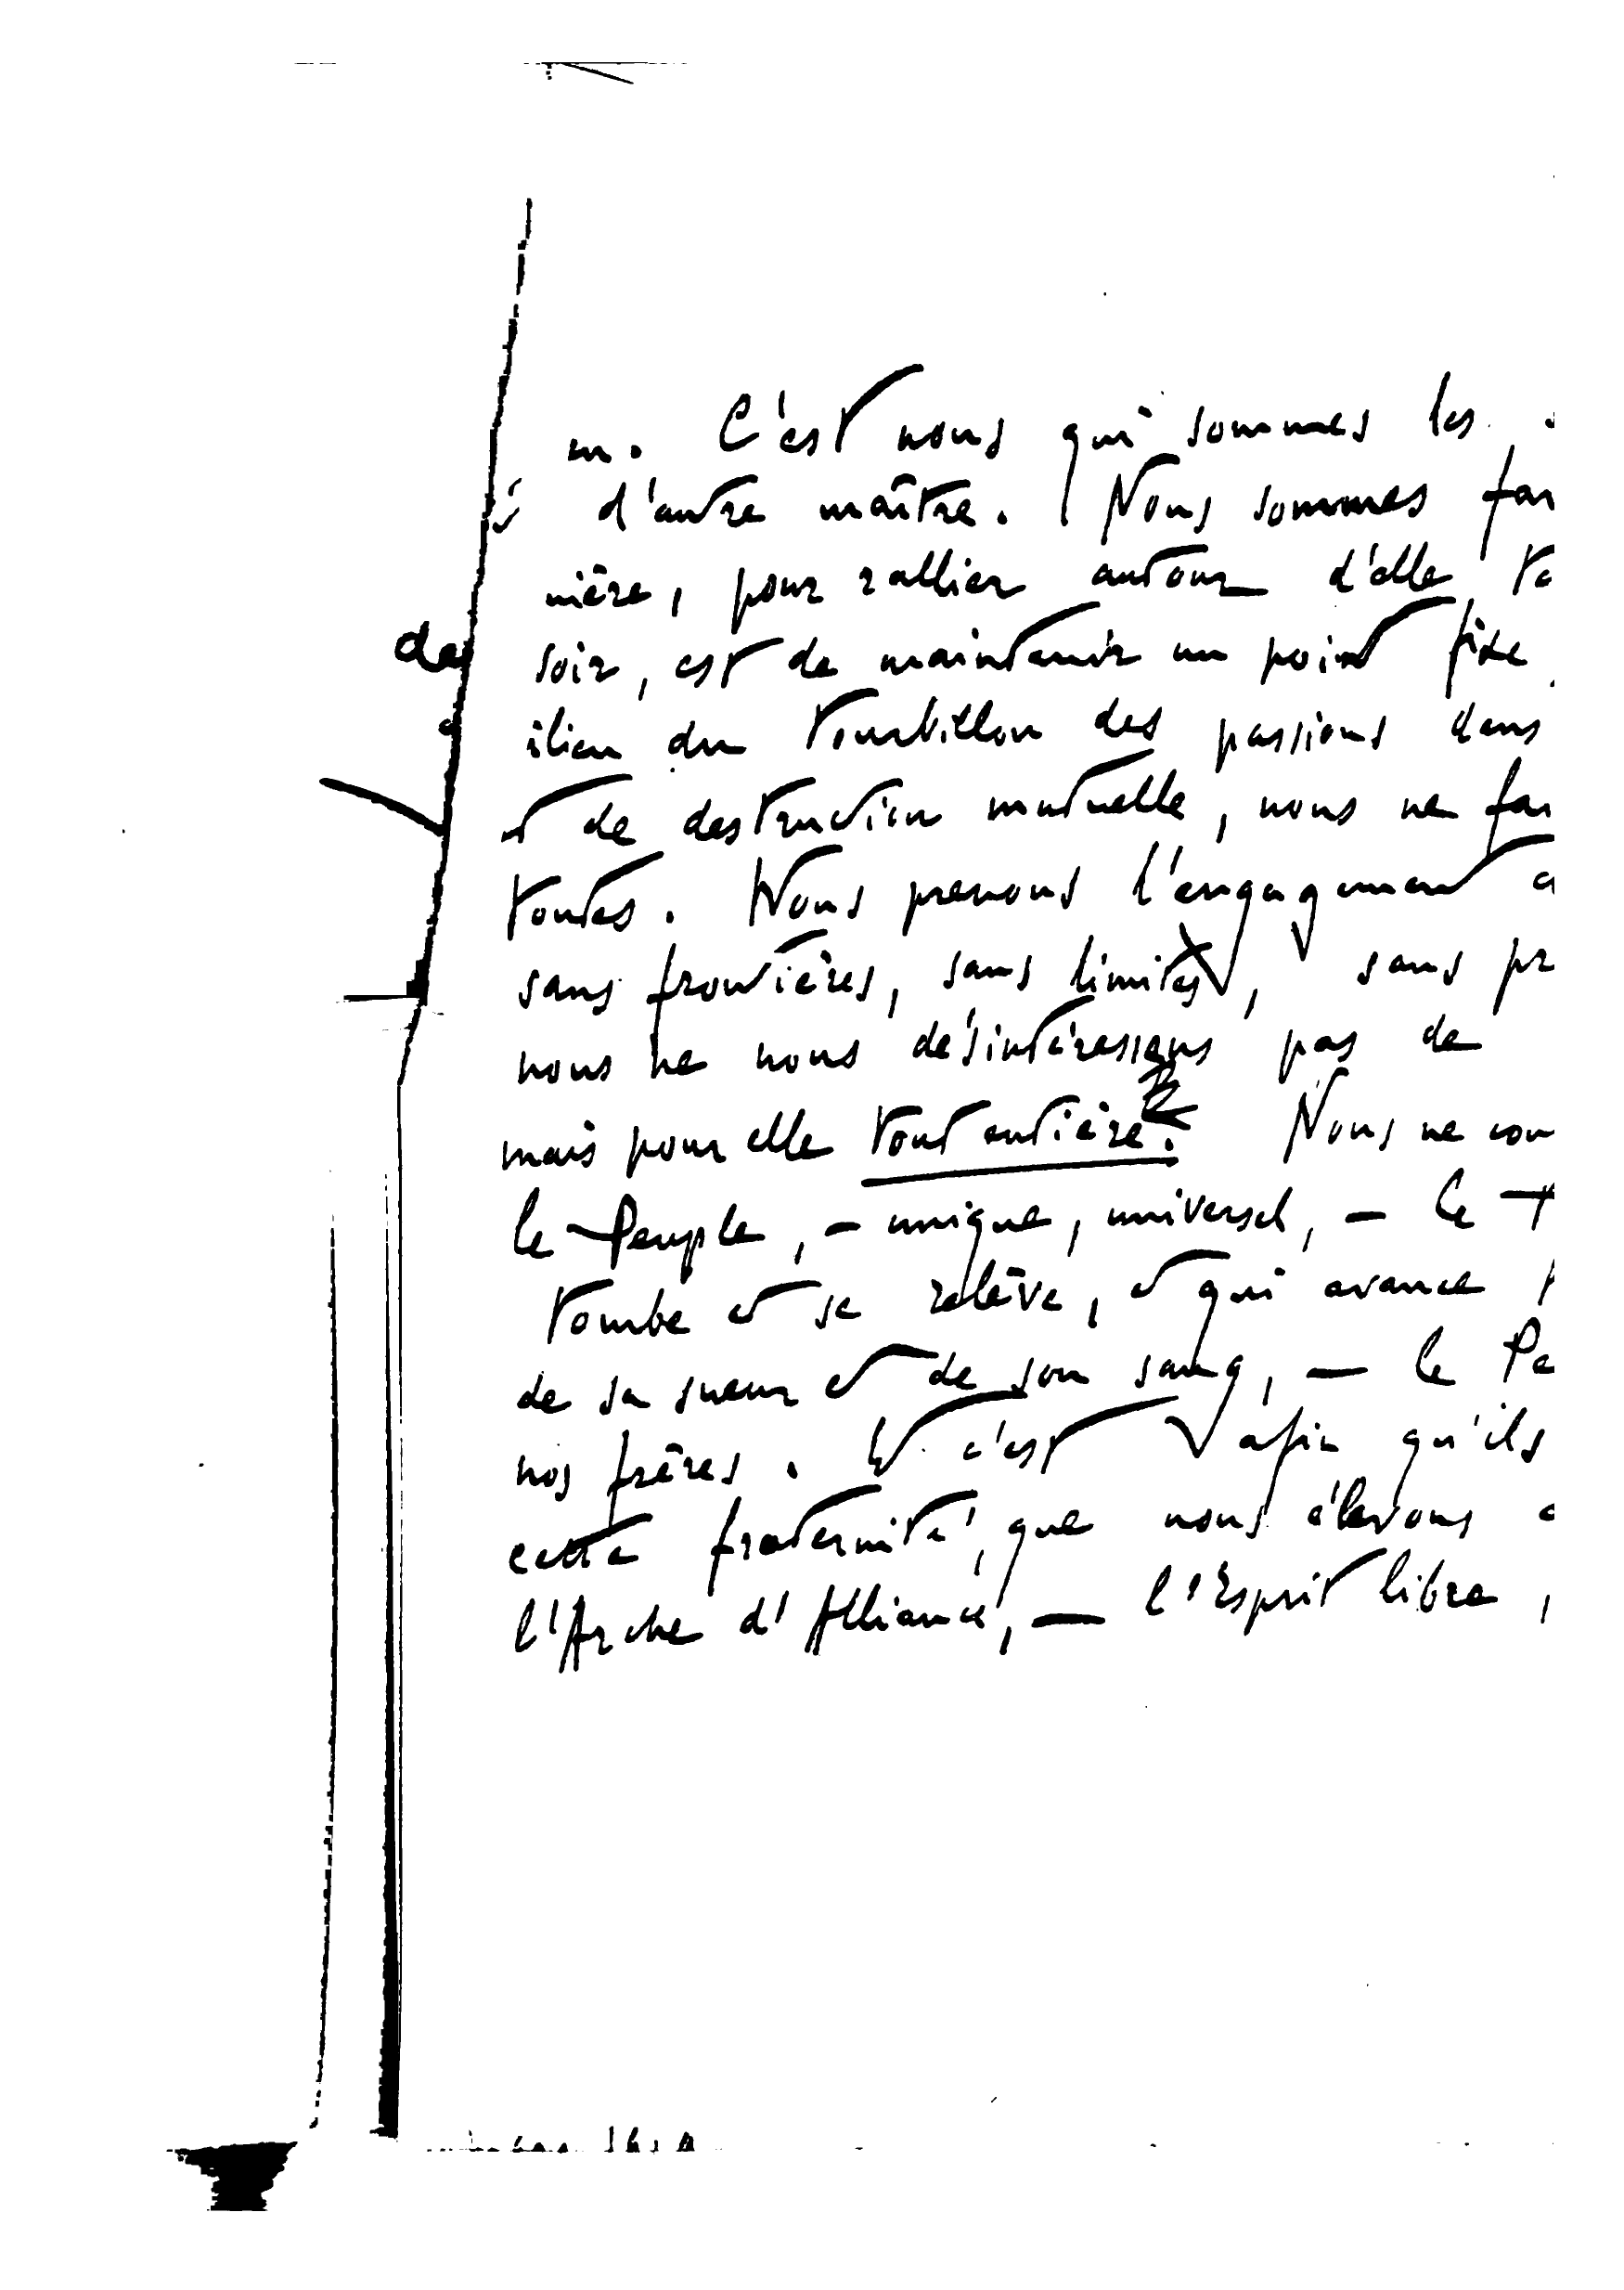 m. C'est nous qui sommes les
d'autre maître. Nous sommes fai
mière, pour rallier autour d'elle to
de
soir, est de maintenir un point fixe,
ilieu du tourbillon des passions dans
t de destruction mutuelle, nous ne fai
toutes. Nous prenons l'engagement
sans frontières, sans limites, sans pr
nous ne nous désintéressons pas de
mais pour elle tout entière. Nous ne con
le Peuple, – unique, universel, – le
tombe et se relève, et qui avance
de sa sueur et de son sang, – le Pe
nos frères. Et c'est afin qu'ils
cette fraternité, que nous élevons
l'Arche d'Alliance, – l'Esprit libre,